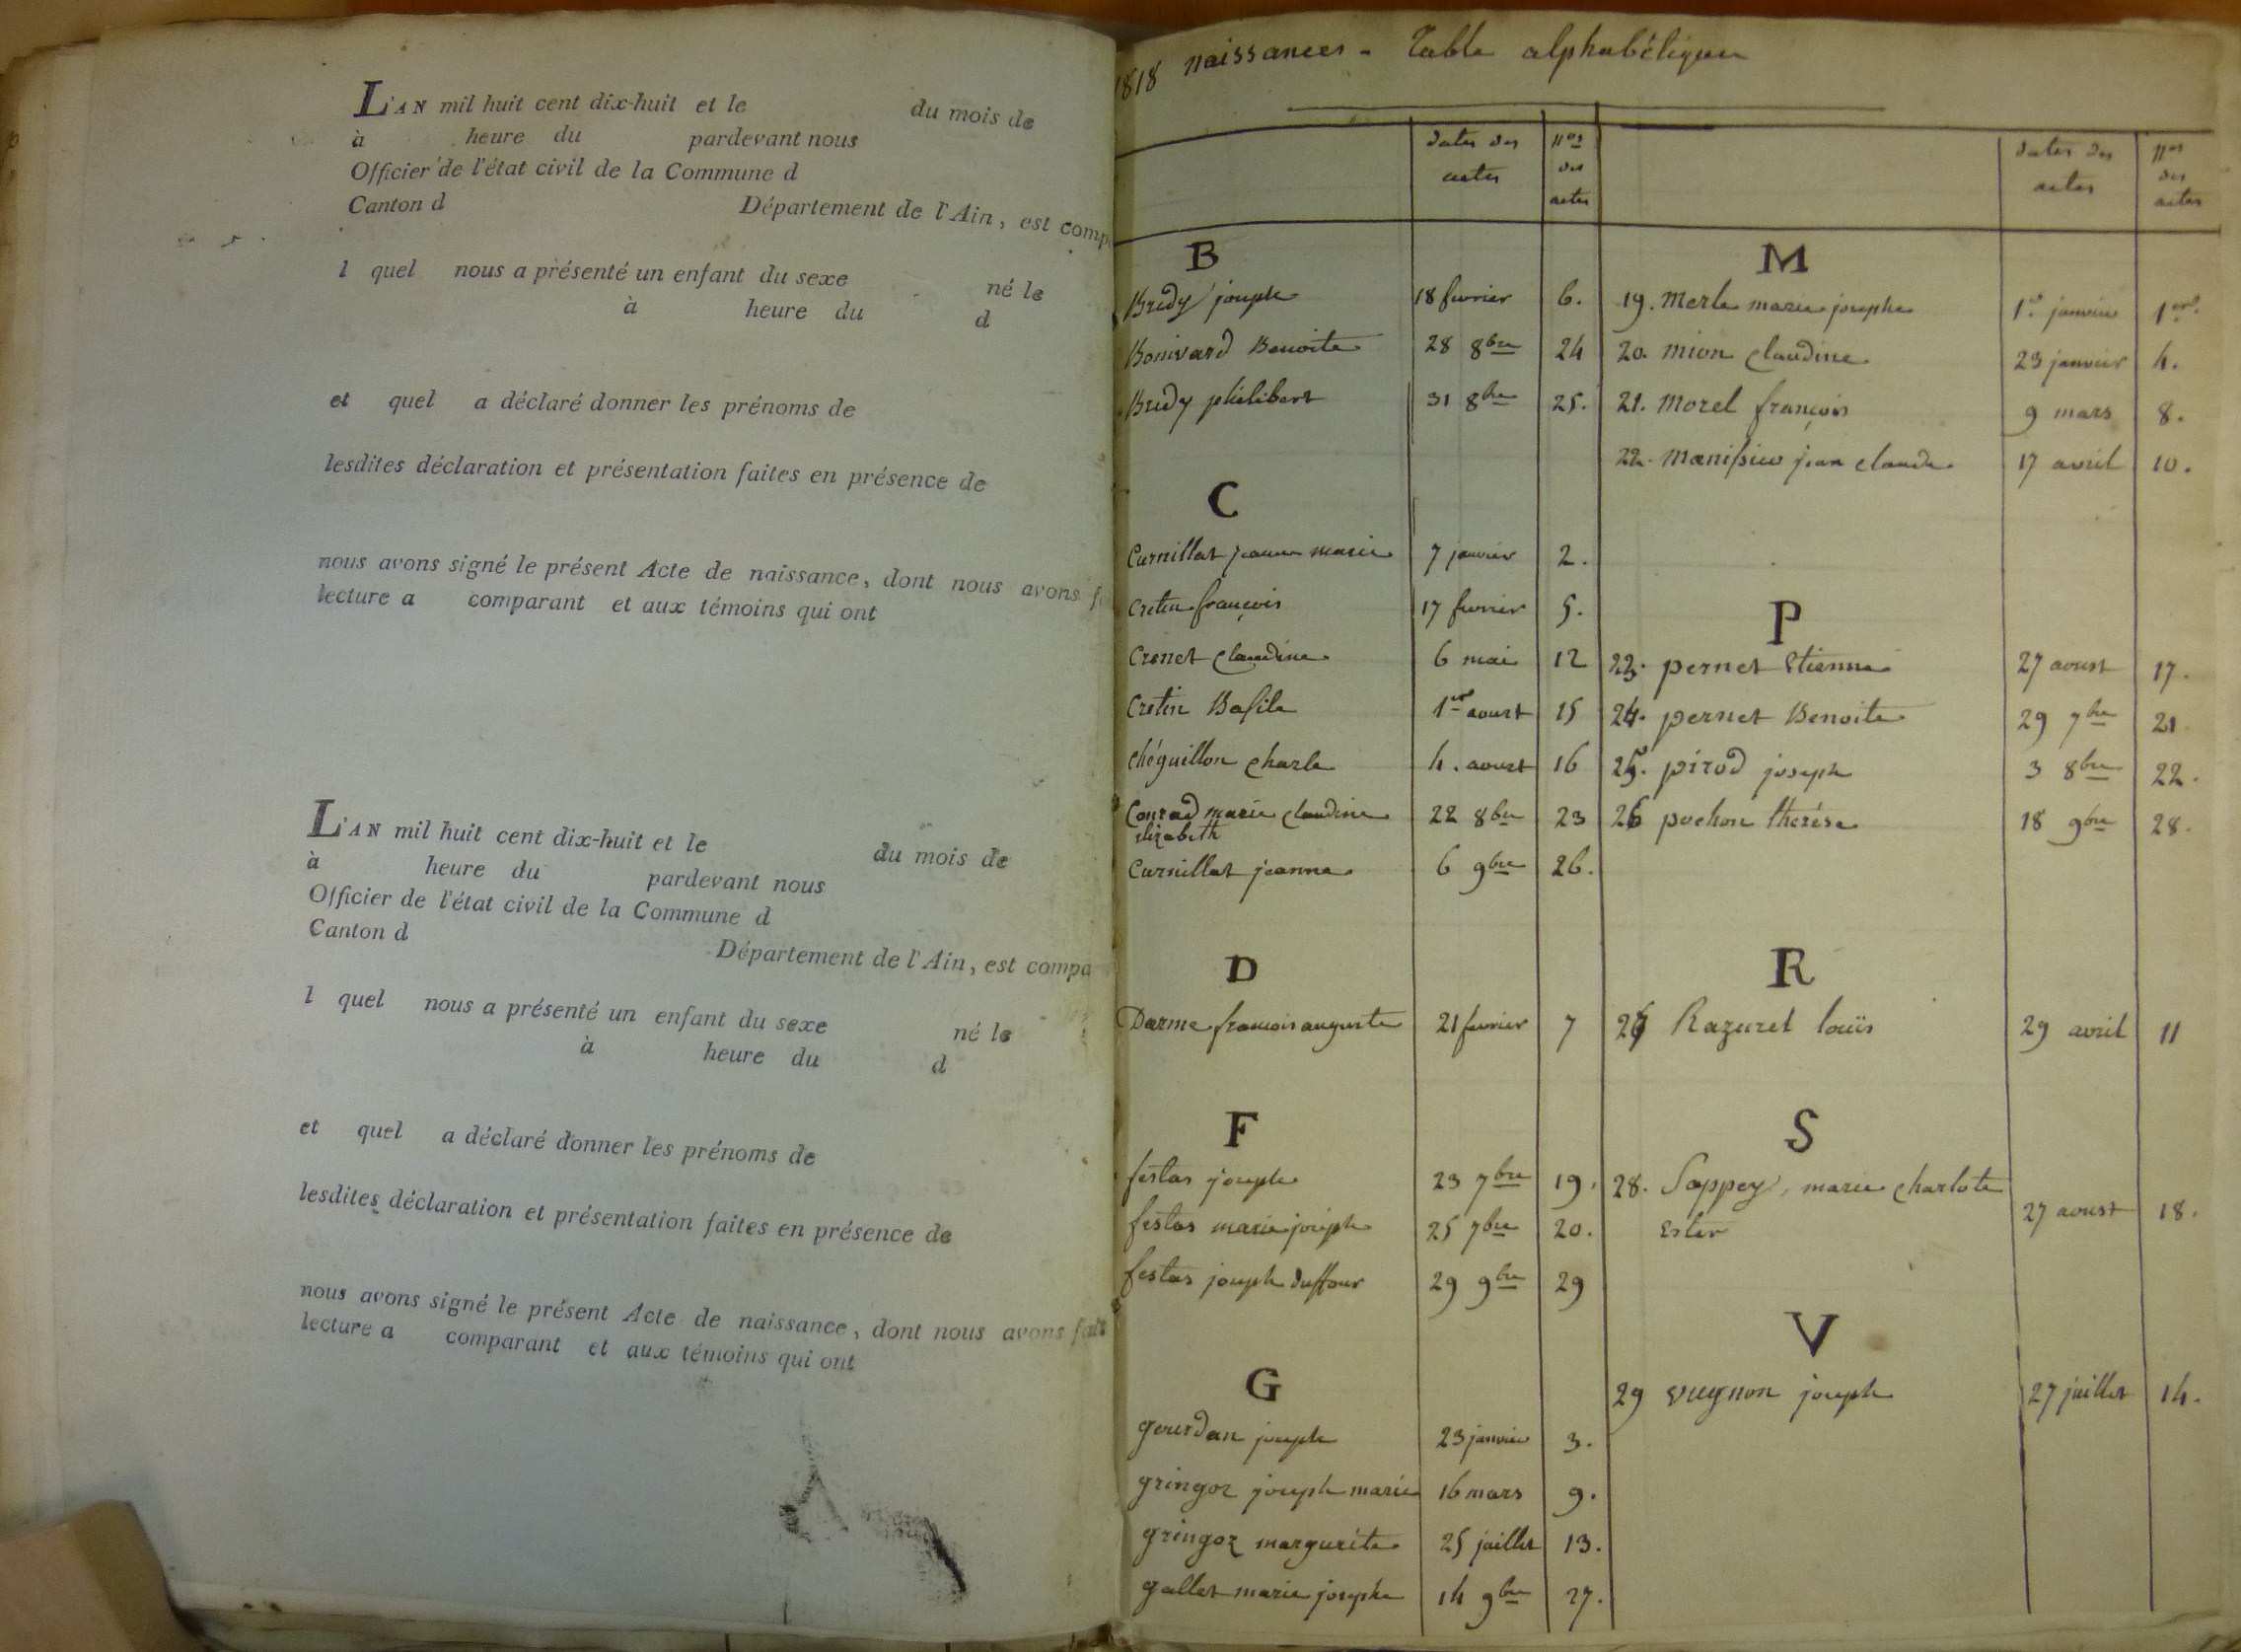 L'AN mil huit cent dix-huit et le du mois de
à heure du pardevant nous
Officier de l'état civil de la Commune d
Canton d Département de l'Ain, est comp
l quel nous a présenté un enfant du sexe né le
à heure du d
et quel a déclaré donner les prénoms de
lesdites déclaration et présentation faites en présence de
nous avons signé le présent Acte de naissance, dont nous avons f
lecture a comparant et aux témoins qui ont
L'AN mil huit cent dix-huit et le du mois de
à heure du pardevant nous
Officier de l'état civil de la Commune d
Canton d Département de l'Ain, est compa
l quel nous a présenté un enfant du sexe né le
à heure du d
et quel a déclaré donner les prénoms de
lesdites déclaration et présentation faites en présence de
nous avons signé le présent Acte de naissance, dont nous avons fait
lecture a comparant et aux témoins qui ont
1818 naissances - Table alphabétique
dates des actes nos des actes
B
Bredy joseph 18 fevrier 6.
Bonivard Benoite 28 8bre 24
Bredy philibert 31 8bre 25.
C
Curnillat jeanne marie 7 janvier 2.
Cretin françois 17 fevrier 5.
Cronet Claudine 6 mai 12
Cretin Basile 1er aoust 15
Chéguillon Charle 4. aoust 16
Conrad marie Claudine 22 8bre 23
elizabeth
Curnillat jeanne 6 9bre 26.
D
Darme francois auguste 21 fevrier 7
F
festas joseph 23 7bre 19.
festas marie joseph 25 7bre 20.
festas joseph duffour 29 9bre 29
G
gourdan joseph 23 janvier 3.
gringoz joseph marie 16 mars 9.
gringoz margurite 25 juillet 13.
gallet marie josephe 14 9bre 27.
dates des actes nos des actes
M
19. Merle marie josephe 1er janvier 1er.
20. mion Claudine 23 janvier 4.
21. Morel françois 9 mars 8.
22. Manissieu jean Claude 17 avril 10.
P
23. pernet Etienne 27 aoust 17.
24. pernet Benoite 29 7bre 21
25. pirod joseph 3 8bre 22.
26 pochon thérése 18 9bre 28.
R
27 Razurel louïs 29 avril 11
S
28. Sappey, marie Charlote
Ester 27 aoust 18.
V
29 vuynon joseph 27 juillet 14.